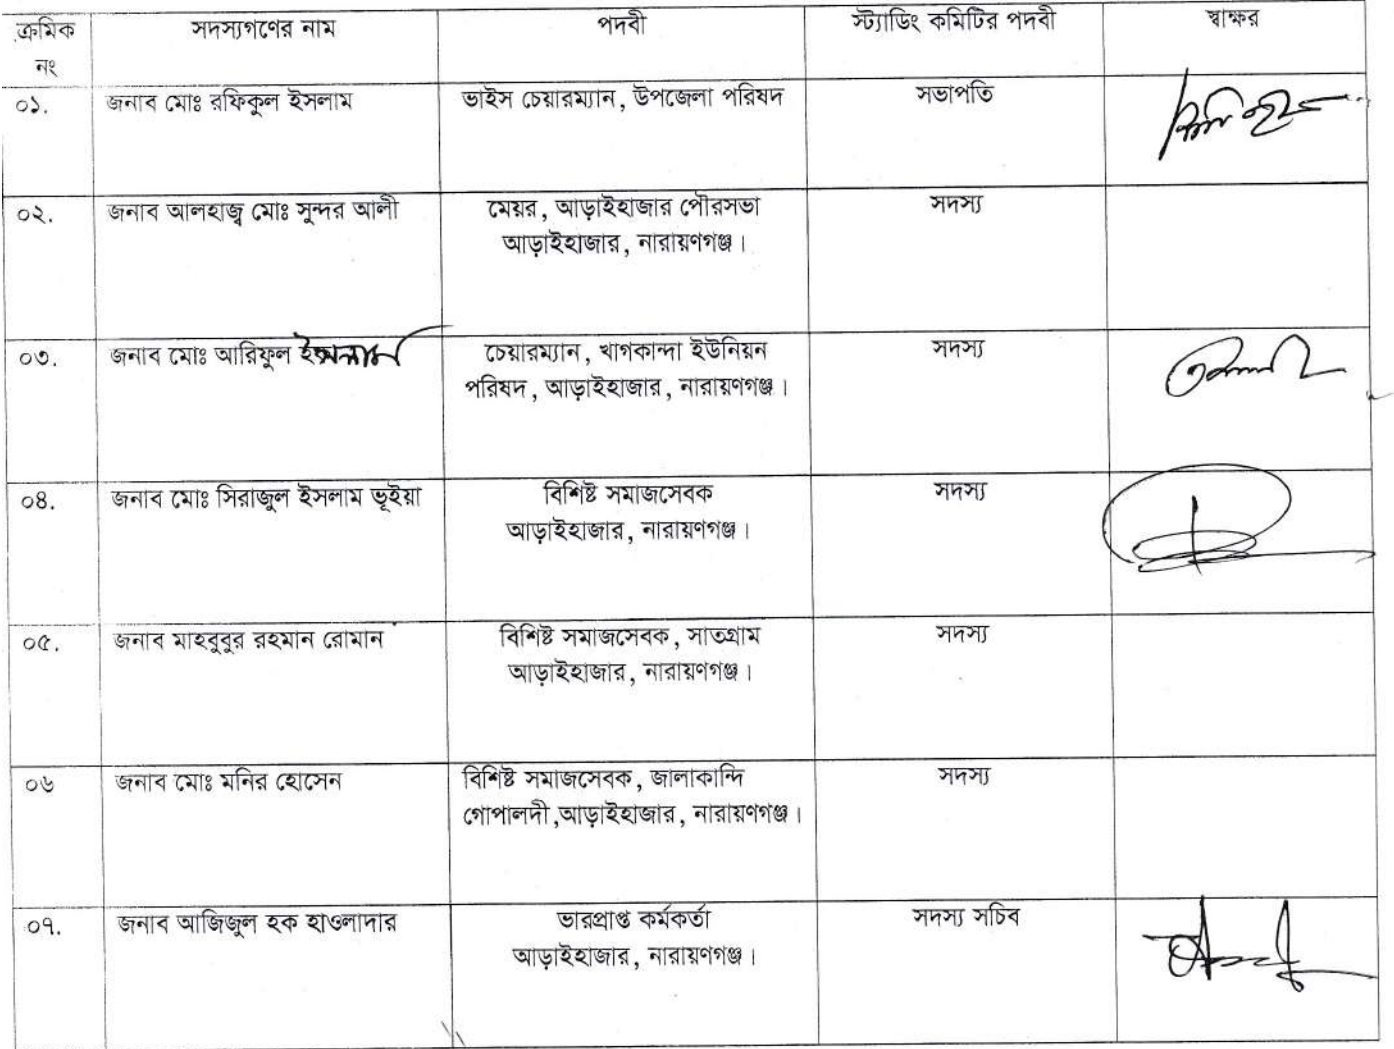 ক্রমিক নং সদস্যগণের নাম পদবী স্ট্যাডিং কমিটির পদবী স্বাক্ষর
০১. জনাব মোঃ রফিকুল ইসলাম ভাইস চেয়ারম্যান, উপজেলা পরিষদ সভাপতি
০২. জনাব আলহাজ্ব মোঃ সুন্দর আলী মেয়র, আড়াইহাজার পৌরসভা সদস্য
আড়াইহাজার, নারায়ণগঞ্জ।
০৩. জনাব মোঃ আরিফুল ইসলাম চেয়ারম্যান, খাগকান্দা ইউনিয়ন সদস্য
পরিষদ, আড়াইহাজার, নারায়ণগঞ্জ।
০৪. জনাব মোঃ সিরাজুল ইসলাম ভূইয়া বিশিষ্ট সমাজসেবক সদস্য
আড়াইহাজার, নারায়ণগঞ্জ।
০৫. জনাব মাহবুবুর রহমান রোমান বিশিষ্ট সমাজসেবক, সাতগ্রাম সদস্য
আড়াইহাজার, নারায়ণগঞ্জ।
০৬ জনাব মোঃ মনির হোসেন বিশিষ্ট সমাজসেবক, জালাকান্দি সদস্য
গোপালদী,আড়াইহাজার, নারায়ণগঞ্জ।
০৭. জনাব আজিজুল হক হাওলাদার ভারপ্রাপ্ত কর্মকর্তা সদস্য সচিব
আড়াইহাজার, নারায়ণগঞ্জ।